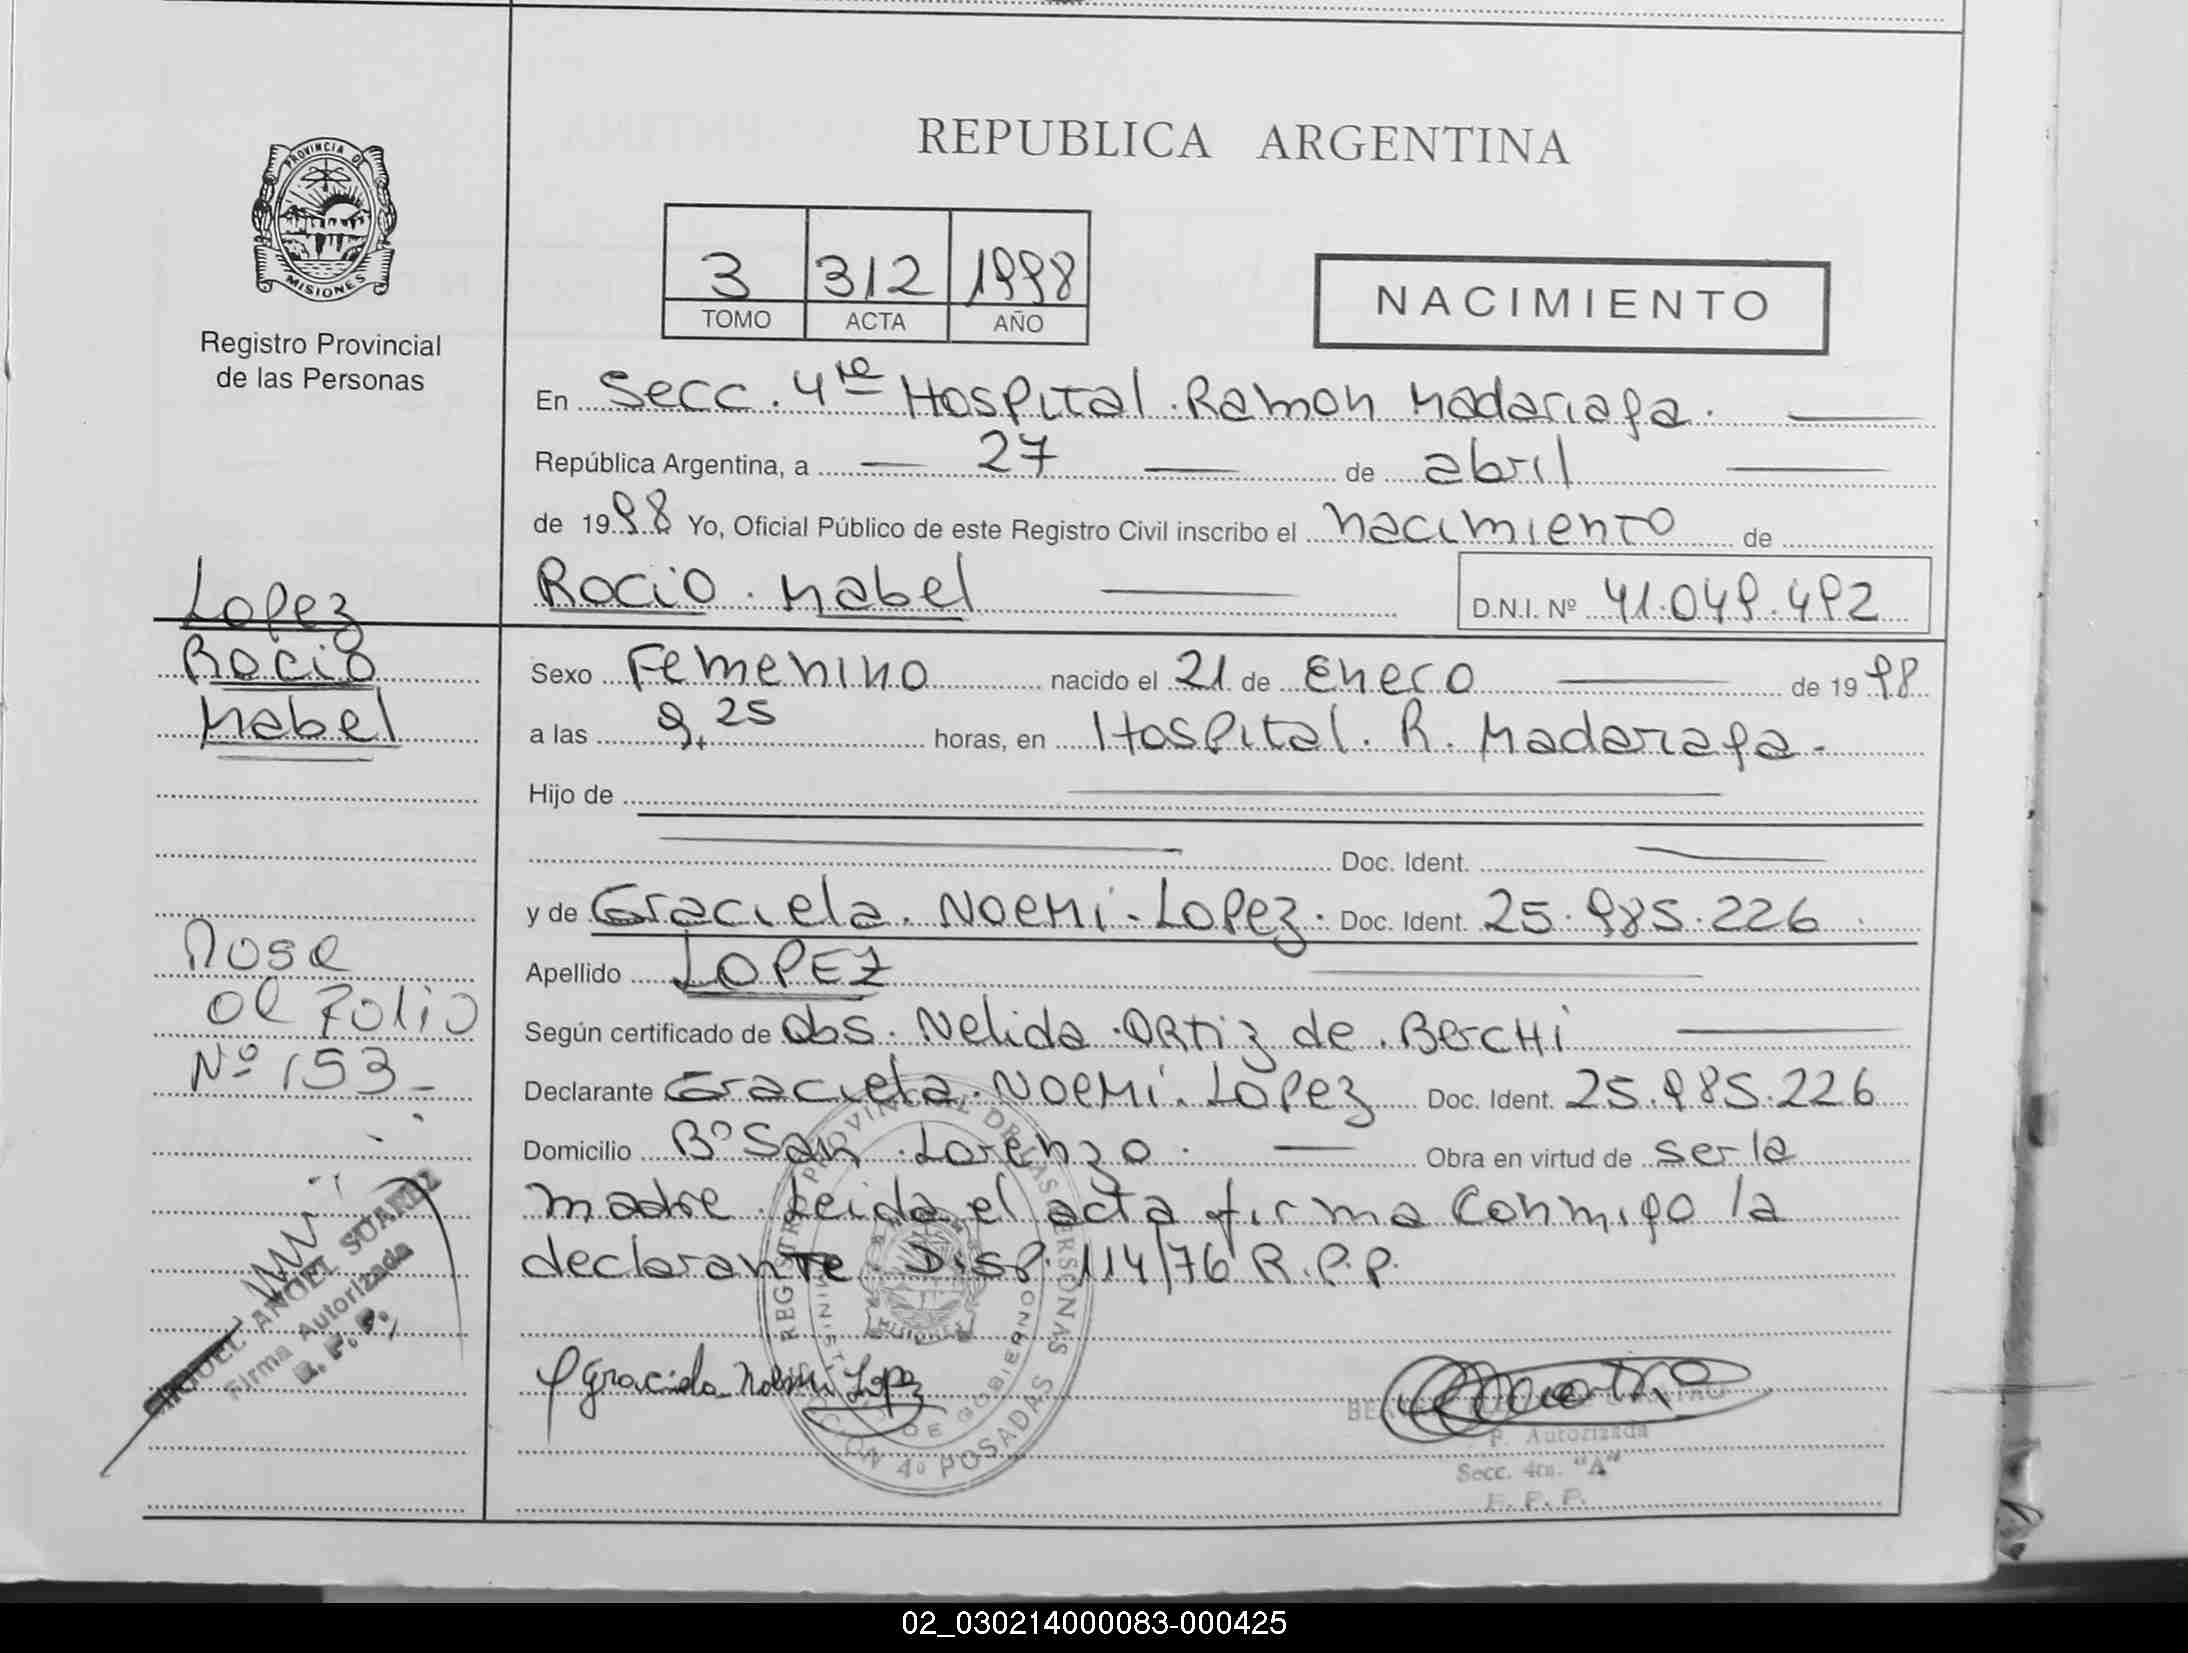 REPUBLICA ARGENTINA
PROVINCIA DE
MISIONES
Registro Provincial
de las Personas
3 312 1998
TOMO ACTA AÑO
NACIMIENTO
En Secc. 4ta Hospital Ramon Madariaga.
República Argentina, a 27 de abril
de 1998 Yo, Oficial Público de este Registro Civil inscribo el nacimiento de
Rocio Mabel D.N.I. Nº 41.049.492
Lopez
Rocio
Mabel
Sexo Femenino nacido el 21 de Enero de 1998
a las 9,25 horas, en Hospital R. Madariaga.
Hijo de
Doc. Ident.
y de Graciela Noemi Lopez. Doc. Ident. 25.985.226
Apellido LOPEZ
Según certificado de Obs. Nelida Ortiz de Berchi
Declarante Graciela Noemi Lopez Doc. Ident. 25.985.226
Domicilio Bº San Lorenzo. Obra en virtud de ser la
madre. Leida el acta firma conmigo la
declarante Disp. 114/76 R.P.P.
al Folio
Nº 153-
MIGUEL ANGEL SUAREZ
Firma Autorizada
R. P. P.
Graciela Noemi Lopez
REGISTRO PROVINCIAL DE LAS PERSONAS
MINISTERIO DE GOBIERNO
SECCION 4º POSADAS
F. Autorizada
Secc. 4ta. "A"
R. P. P.
02_030214000083-000425